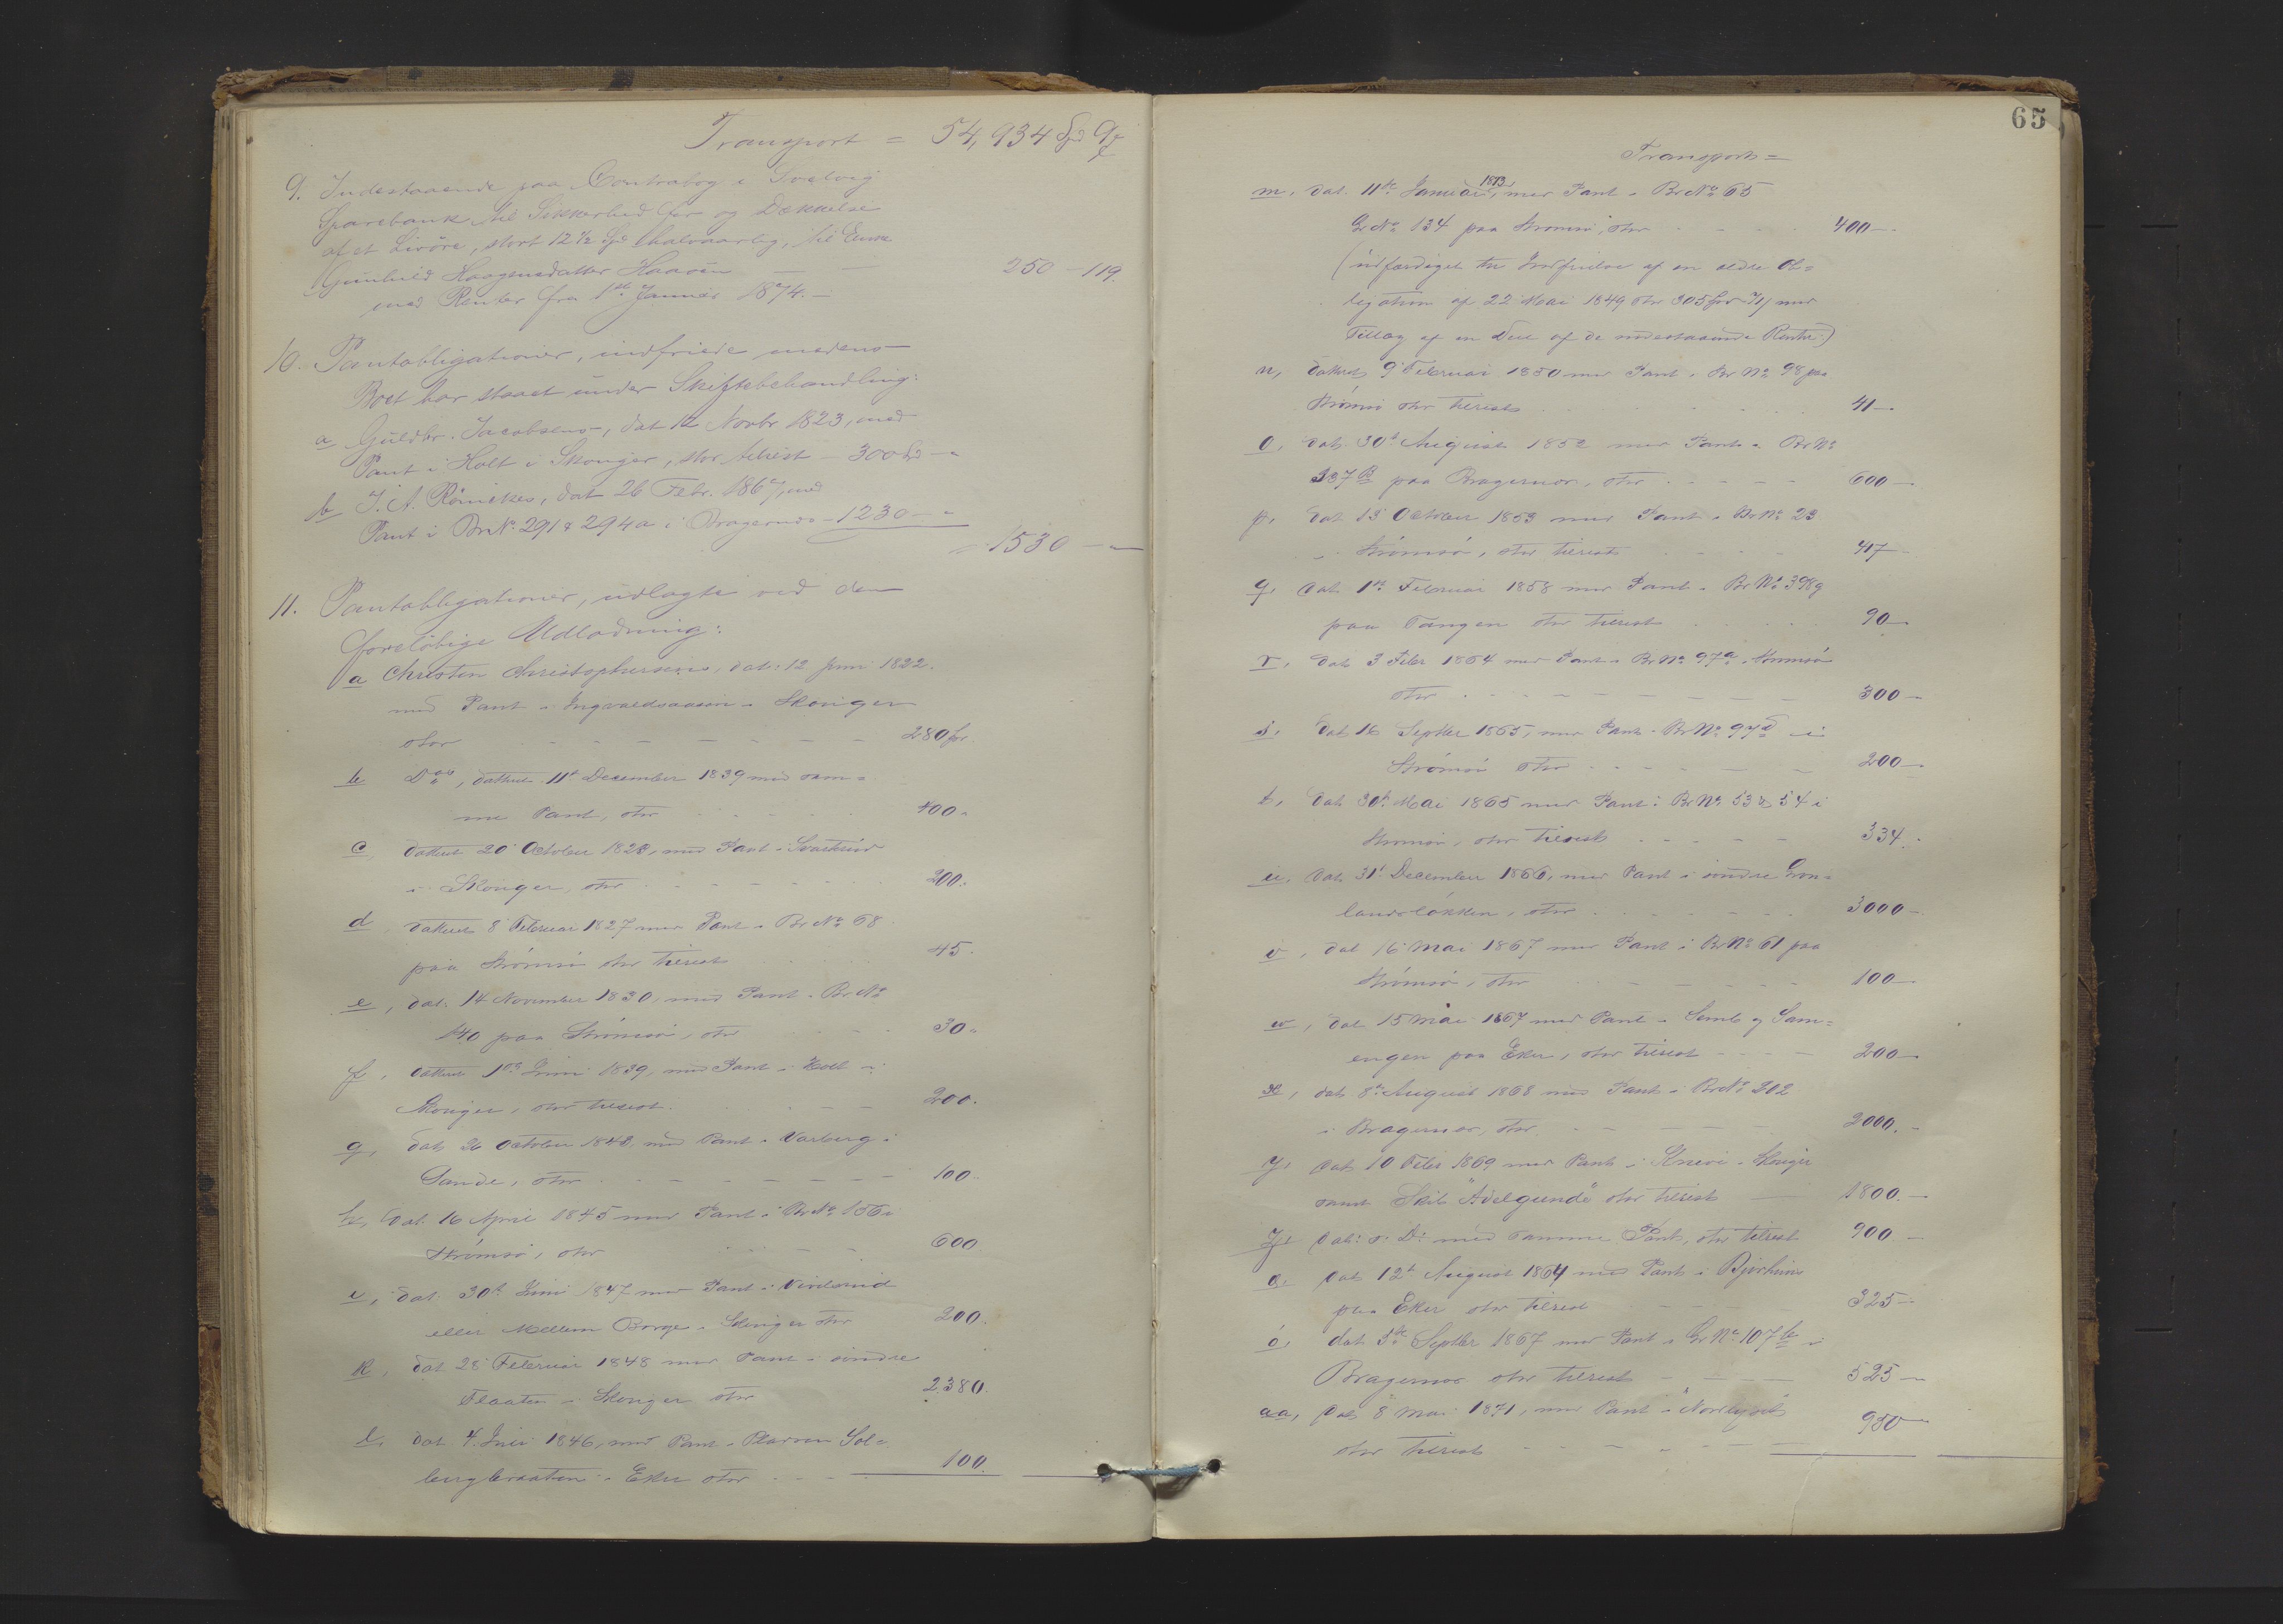 Transport = 54,934 Spd 9 ß
9. Indestaaende paa Contrabog i Svelvig
Sparebank til Sikkerhed for og Dækkelse
af et Livöre, stort 12 1/2 Spd halvaarlig, til Enke
Gunhild Haagensdatter Haasen — — 250 - 119.
med Renter fra 1ste Januar 1874. —
10. Pantobligationer, indfriede medens
Boet har staaet under Skiftebehandling:
a Guldbr. Jacobsens, dat 12 Novbr 1823, med
Pant i Holt i Skouger, stor tilrest - 300 Spd - "
b J. A. Rönickes, dat 26 Febr. 1867, med
Pant i Br.No. 291 & 294a i Bragernæs - 1230 - "
= 1530 - —
11. Pantobligationer, udlagte ved den
forelöbige Udlodning:
a Christen Christophersens, dat: 12 Juni 1822.
med Pant i Ingvaldsaasen i Skouger
stor - - - - - - - 280 Spd.
b Do, dateret 11te December 1839 med sam=
me Pant, stor - - - - 400. "
c dateret 20 October 1828, med Pant i Svartsrud
i Skouger, stor - - - - - 200.
d dateret 8 Februar 1827 med Pant i Br No 68
paa Strömsö stor tilrest 45.
e, dat. 14 November 1830, med Pant i Br No
140 paa Strömsö, stor - - - 30. "
f, dateret 1ste Juni 1839, med Pant i Holt i
Skouger, stor tilrest. - - - 200.
g, dat 26 October 1848, med Pant i Varberg i
Sande, stor - - - - - - - 100.
h, dat. 16 April 1845 med Pant i Br No 156 i
Strömsö, stor - - - 600
i, dat. 30te Juni 1847 med Pant i
eller Mellem Borge i Skouger stor 200.
k, dat 28 Februar 1848 med Pant i söndre
Flaaten i Skouger stor 2380.
l, dat 4. Juli 1846, med Pant i Pladsen Sol=
bergbraaten i Eker stor - - - 100.
65
Transport =
m, dat. 11te Januar 1873, med Pant i Br No 65
Gr No 134 paa Strömsö, stor - - - - 400 -
(udfærdiget til Indfrielse af en ældre Ob=
ligation af 22 Mai 1849 stor 305 Spd med
Tillæg af en Deel af de indestaaende Renter)
n, dateret 9 Februar 1850 med Pant i Br No 98 paa
Strömsö stor tilrest 41 -
o, dat. 30te August 1852 med Pant i Br No
137 B paa Bragernæs, stor - - - - 600 -
p, dat 13 October 1853 med Pant i Br No 23
i Strömsö, stor tilrest - - - 47 -
q, dat 1ste Februar 1858 med Pant i Br No 398 g
paa Tangen stor tilrest - - - 90 -
r, dat 3 Febr 1864 med Pant i Br No 97 a i Strömsö
stor - - - - - - - - 300 -
s, dat 16 Septbr 1865, med Pant i Br No 97 d i
Strömsö stor - - - - - - 200 -
t, dat 30te Mai 1865 med Pant i Br No 53 & 54 i
Strömsö, stor tilrest - - - - - 334. -
u, dat 31te December 1866, med Pant i söndre Grön=
landslökken, stor - - - - - - 3000 -
v, dat 16 Mai 1867 med Pant i Br No 61 paa
Strömsö, stor - - - - - - 100 -
w, dat 15 Mai 1867 med Pant i Semb og Sam=
engen paa Eker, stor tilrest - - - - 200 -
x, dat 8te August 1868 med Pant i Br No 302
i Bragernæs, stor - - - - - 2000. -
y, dat 10 Febr 1869 med Pant i Knive i Skouger
samt Skib "Adelgunde" stor tilrest — 1800. -
z, dat: s: D: med samme Pant, stor tilrest 900 -
æ, dat 12te August 1864 med Pant i
paa Eker stor tilrest - - - 325 -
ö, dat 3die Septbr 1867 med Pant i Gr No 107 b i
Bragernæs stor tilrest - - - 525 -
aa, dat 8 Mai 1871, med Pant i "Nordlyset"
stor tilrest - - - - - - - 950 -